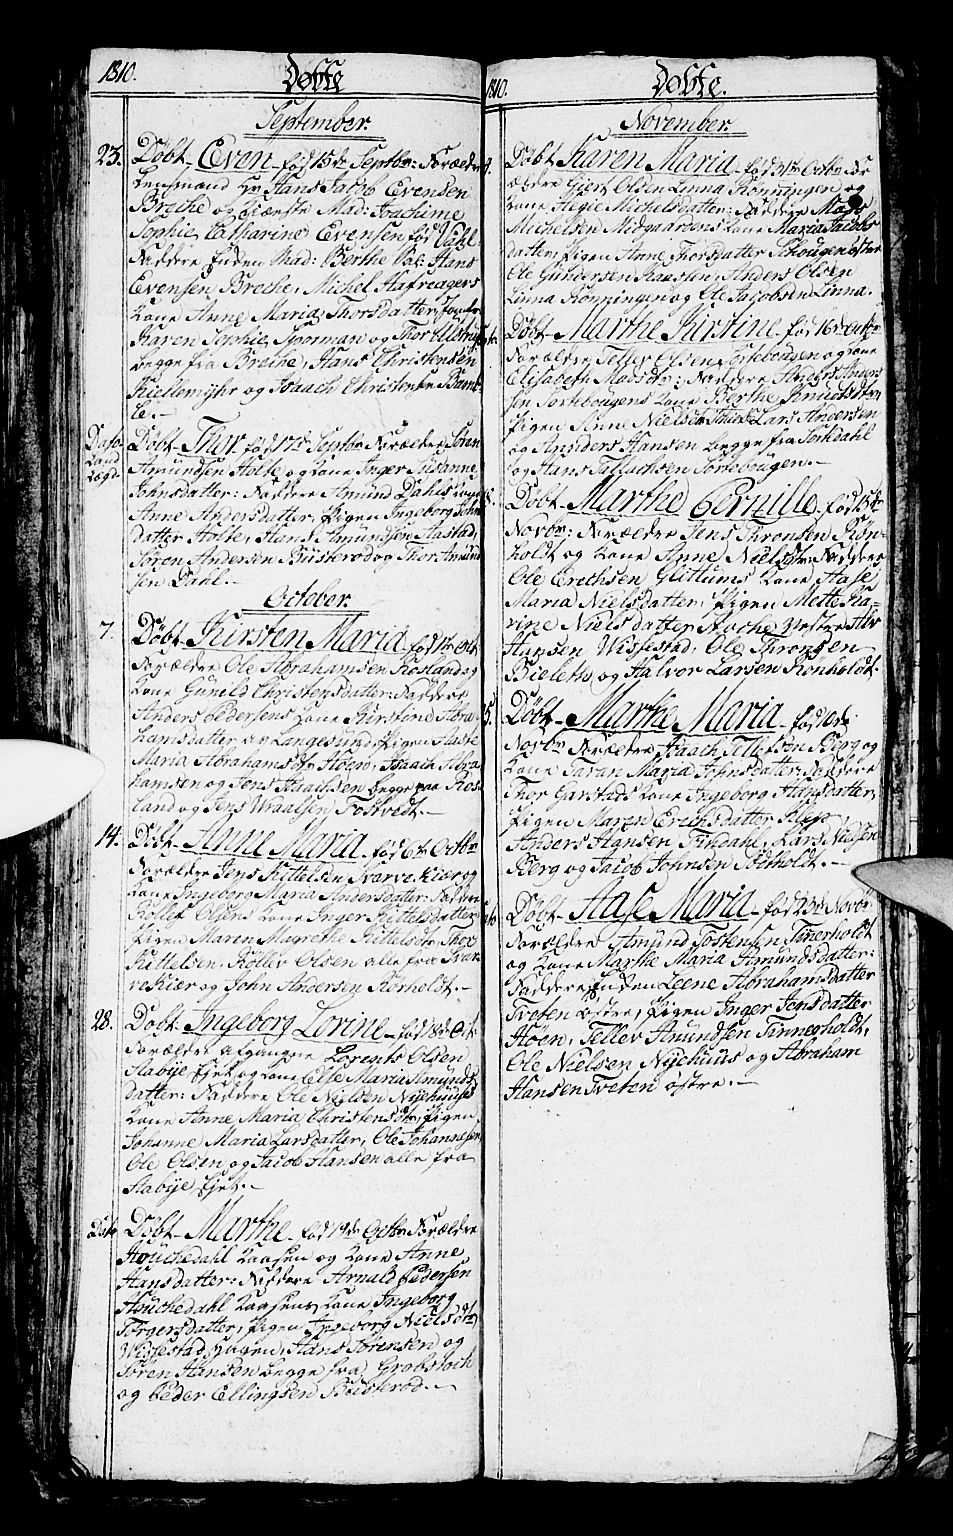 1810.
Døbte
September.
23. Døbt Even fød 15de Septbr: Forældre
Lensmand Hr Hans Jacob Evensen
Breche og Kiæreste Mad: Joachime
Sophie Catharine Evensen fød Dahl.
Faddere Enden Mad: Berthe Sal: Hans
Evensen Breche, Michel Hafreagers
Kone Anne Maria Thorsdatter, Jomfr
Karen Sophie Sporman og Thor
begge fra Breche, Hans Christensen
Kiellemyhr og Isaach Christensen Bamb-
le.
Døbt Thor fød 17de Septbr Forældre Søren
Amundsen Holte og Kone Inger Susanne
Johnsdatter: Faddere Amund Dahls Kone
Anne Andersdatter, Pigen Ingeborg Johns
datter Holte, Hans Amundsen Aastad,
Søren Andersen Busterod og Thor Amund
sen Dahl.
October.
7. Døbt Kirsten Maria fød 1te Oct
Forældre Ole Abrahamsen Rosland og
Kone Gunild Christensdatter: Faddere
Anders Pedersens Kone Kirstine Abra-
hamsdatter av Langesund, Pigen Aaste
Maria Abrahamsdtr Høen, Isaach Abra
hamsen og Jens Isaachsen begge paa Ros-
land og Jens Wraalsen Tostvedt.
14. Døbt Anne Maria fød 6te Octbr
Forældre Jens Kittelsen Svarve Kier og
Kone Ingeborg Maria Andersdatter: Faddere
Rollef Olsens Kone Inger Kittelsdatter,
Pigen Maren Magrethe Kittelsdtr, Thor
Kittelsen, Rollef Olsen alle fra Svar-
ve Kier og John Andersen Rorholdt.
28. Døbt Ingeborg Lorine fød 18de Oct
Forældre afgangne Lorents Olsen
Stabye Eyet og Kone Else Maria Amunds
datter: Faddere Ole Nielsen Nyehuuses
Kone Anne Maria Christensdtr, Pigen
Johanne Maria Larsdatter, Ole Johannesen
Ole Olsen og Jacob Hansen alle fra
Stabye Eyet.
Dito Døbt Marthe fød 19de Octbr Forældre
Houchedahl Kaasen og Kone Anne
Hansdatter: Faddere Arnold Pedersen
Houchedahl Kaasens Kone Ingeborg
Torgersdatter, Pigen Ingeborg Nielsdtr
Wissestad, Hagen, Hans Sørensen og
Søren Hansen begge fra Grobstoch
og Peder Ellingsen Busterod.
1810.
Døbte.
November.
Døbt Karen Maria fød 31te Octbr For
ældre Giert Olsen Linna Rønningen og
Kone Aegie Michelsdatter: Faddere Mads
Michelsen Midgaardens Kone Maria Jacobs
datter, Pigen Anne Thorsdatter Schougen østre
Ole Gundersen Kaassen, Anders Olsen
Linna Rønningen og Ole Jacobsen Linna.
Døbt Marthe Kirstine fød 16de Octbr
Forældre Tellef Olsen Sortebougen og Kone
Elisabeth Madsdtr: Faddere Anders Anders
sen Sortebougens Kone Berthe Knudsdtr
Pigen Anne Nielsdtr, Lars Andersen
og Anders Hansen begge fra Sortdahl
og Hans Tellefsen Sortebougen.
Døbt Marthe Pernille fød 15de
Novbr: Forældre Jens Thronsen Røn-
holdt og Kone Anne Nielsdtr Faddere
Ole Erichsen Glittums Kone Aase
Maria Nielsdatter, Pigen Mette Ka-
rine Nielsdatter Aasche østre
Hansen Wissestad, Ole Thronsen
Bieleth, og Halvor Larsen Ronholdt.
Døbt Marthe Maria fød 10de
Novbr Forældre Isaach Tellefsen Berg og
Kone Taran Maria Johnsdatter: Faddere
Thor Garstads Kone Ingeborg Hansdatter,
Pigen Maren Erichsdatter
Anders Hansen Findahl, Lars Nielsen
Berg og Jacob Johnsen Rorholdt.
Døbt Aase Maria fød 23de Novbr
Forældre Amund Tostensen Tinerholdt
og Kone Marthe Maria Amundsdatter:
Faddere Enden Leene Abrahamsdatter
Tveten østre, Pigen Inger Jensdatter
Høen, Tellef Amundsen Tinnerholdt,
Ole Nielsen Nyehuus og Abraham
Hansen Tveten østre.